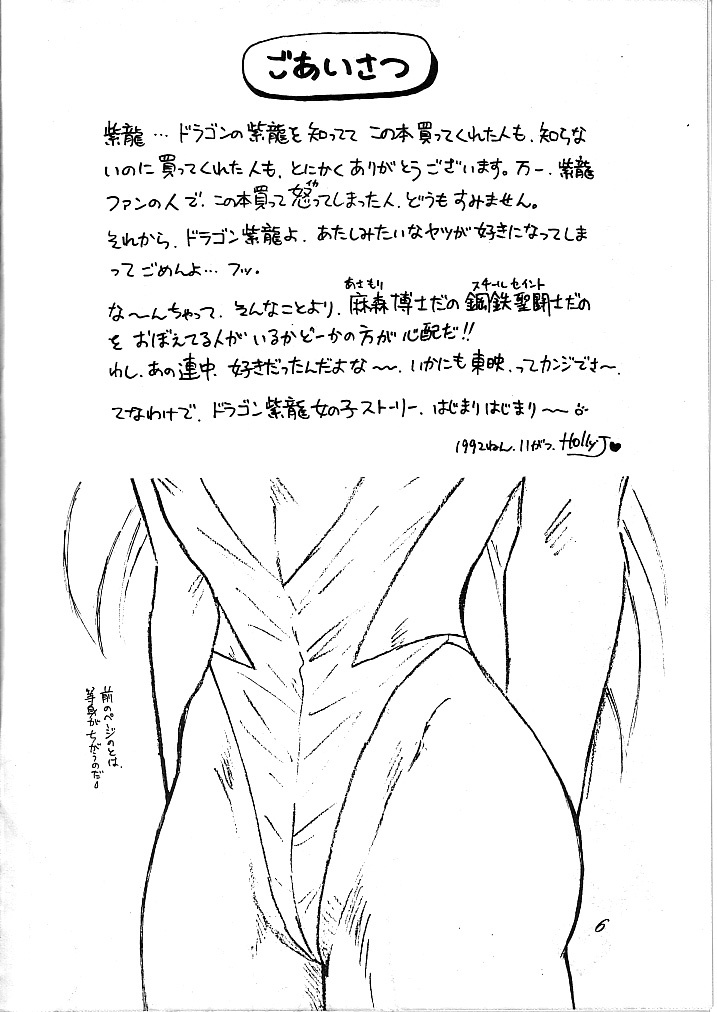 ごあいさつ
紫龍…ドラゴンの紫龍を知ってて この本買ってくれた人も、知らな
いのに買ってくれた人も、とにかくありがとうございます。万一、紫龍
ファンの人で、この本買って怒ってしまった人、どうもすみません。
それから、ドラゴン紫龍よ、あたしみたいなヤツが好きになってしま
ってごめんよ…フッ。
あさもり スチールセイント
な〜んちゃって、そんなことより、麻森博士だの鋼鉄聖闘士だの
を おぼえてる人がいるかどーかの方が心配だ!!
わし、あの連中、好きだったんだよな〜〜、いかにも東映、ってカンジでさ〜、
てなわけで、ドラゴン紫龍女の子ストーリー、はじまりはじまり〜〜
1992ねん、11がつ、Holly J♥
前のページのとは、
等身がちがうのだ。
6